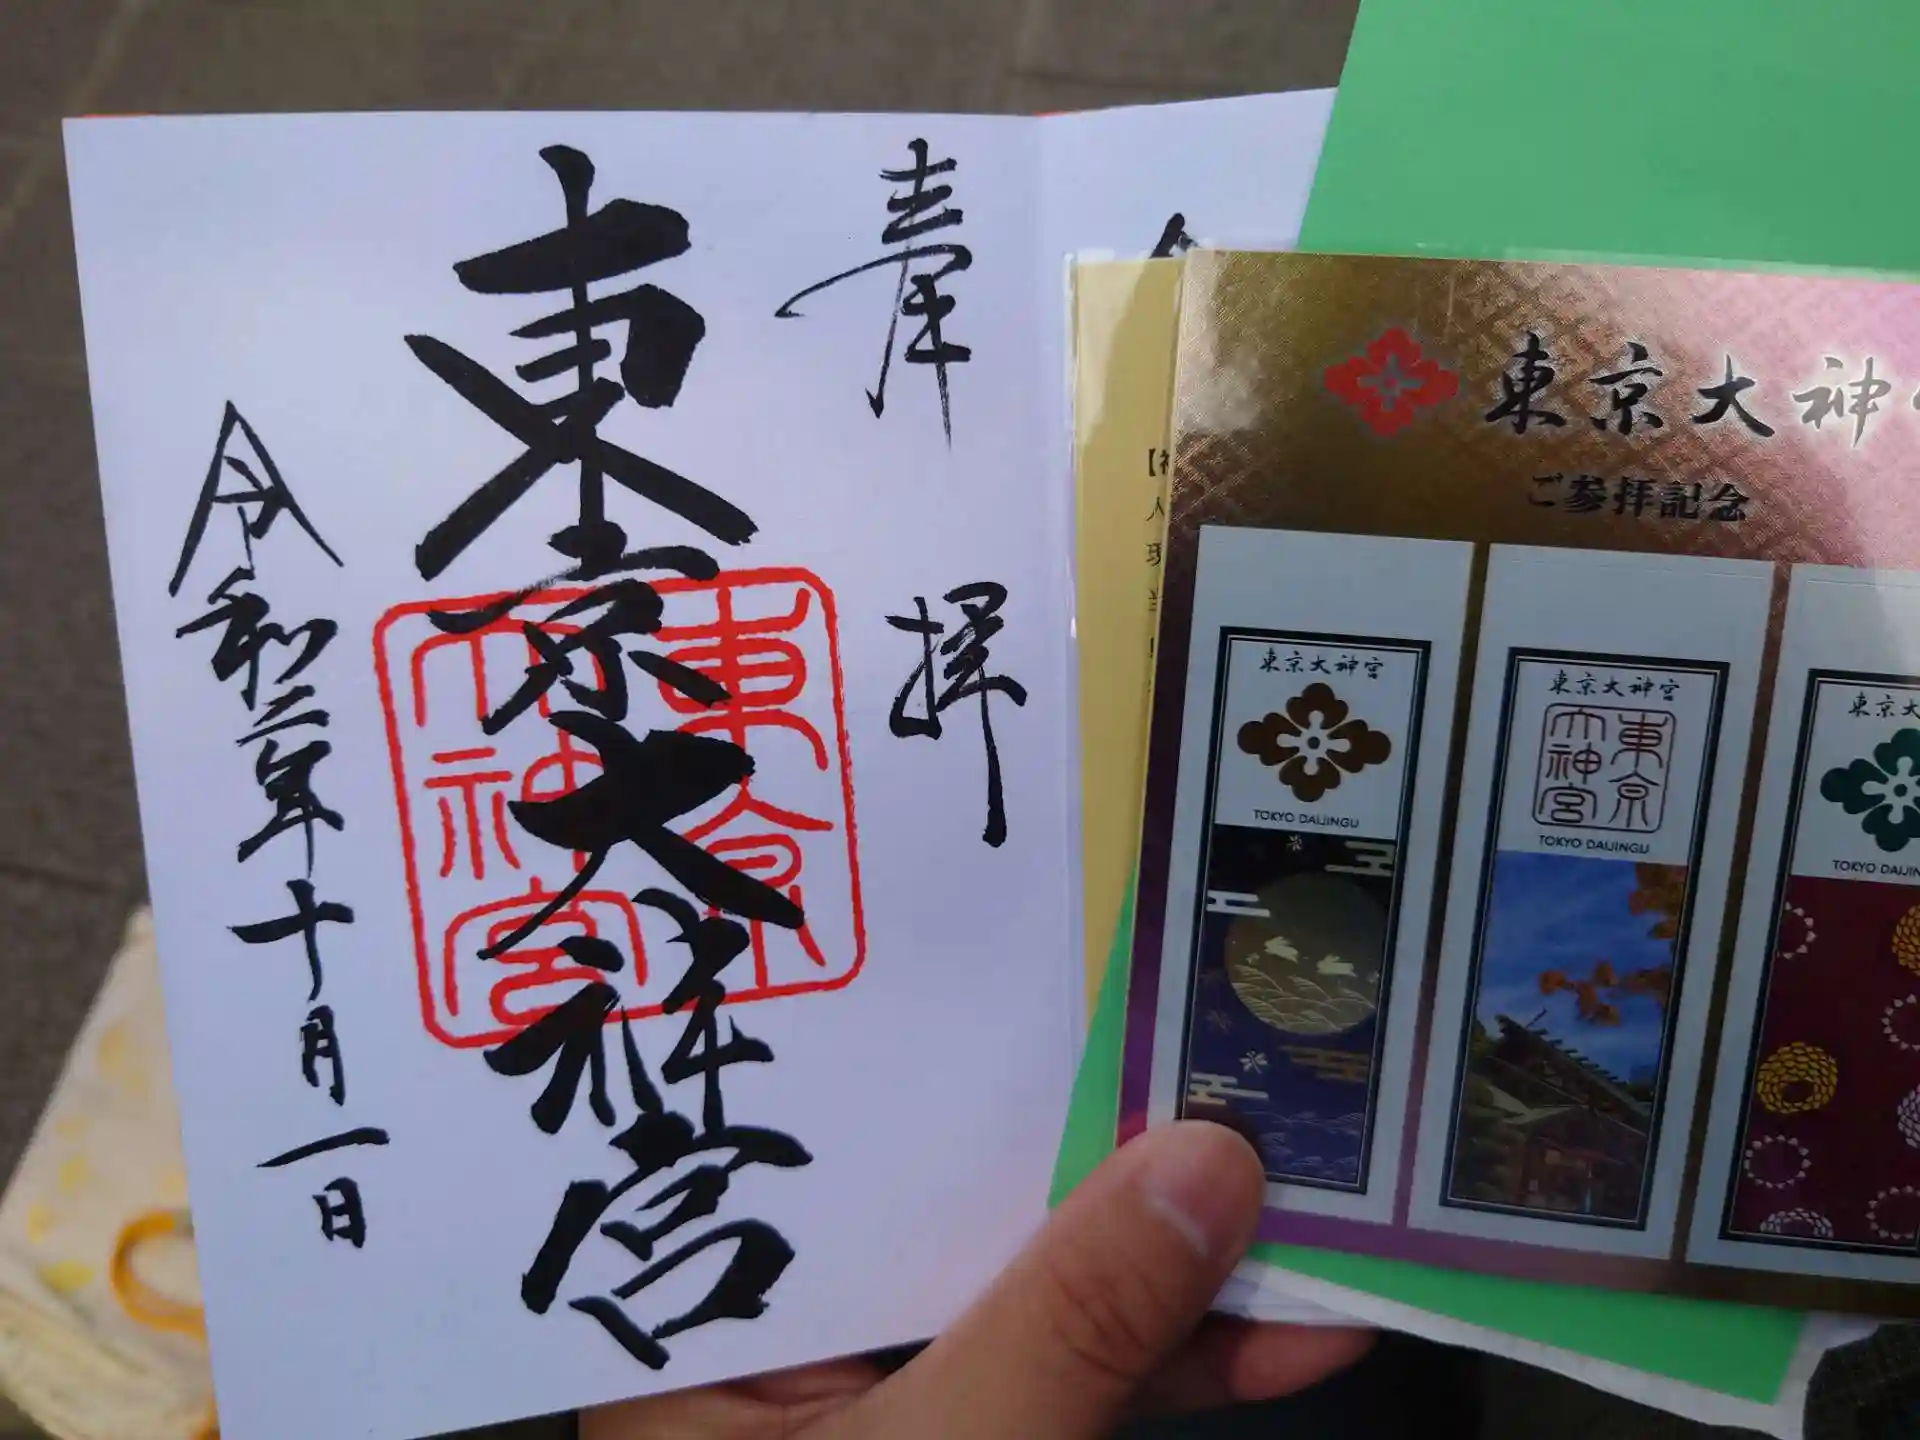 奉拝
東京大神宮
東京大神宮
令和三年十月一日
東京大神
ご参拝記念
東京大神宮
TOKYO DAIJINGU
東京大神宮
東京大神宮
TOKYO DAIJINGU
東京大
TOKYO DAIJIN